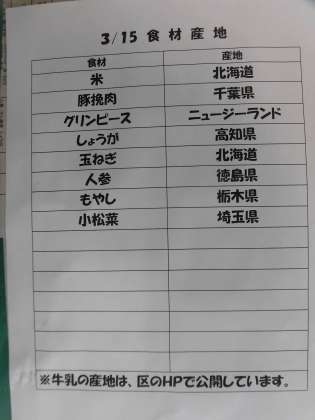 3/15 食材産地
食材 産地
米 北海道
豚挽肉 千葉県
グリンピース ニュージーランド
しょうが 高知県
玉ねぎ 北海道
人参 徳島県
もやし 栃木県
小松菜 埼玉県
※牛乳の産地は、区のHPで公開しています。